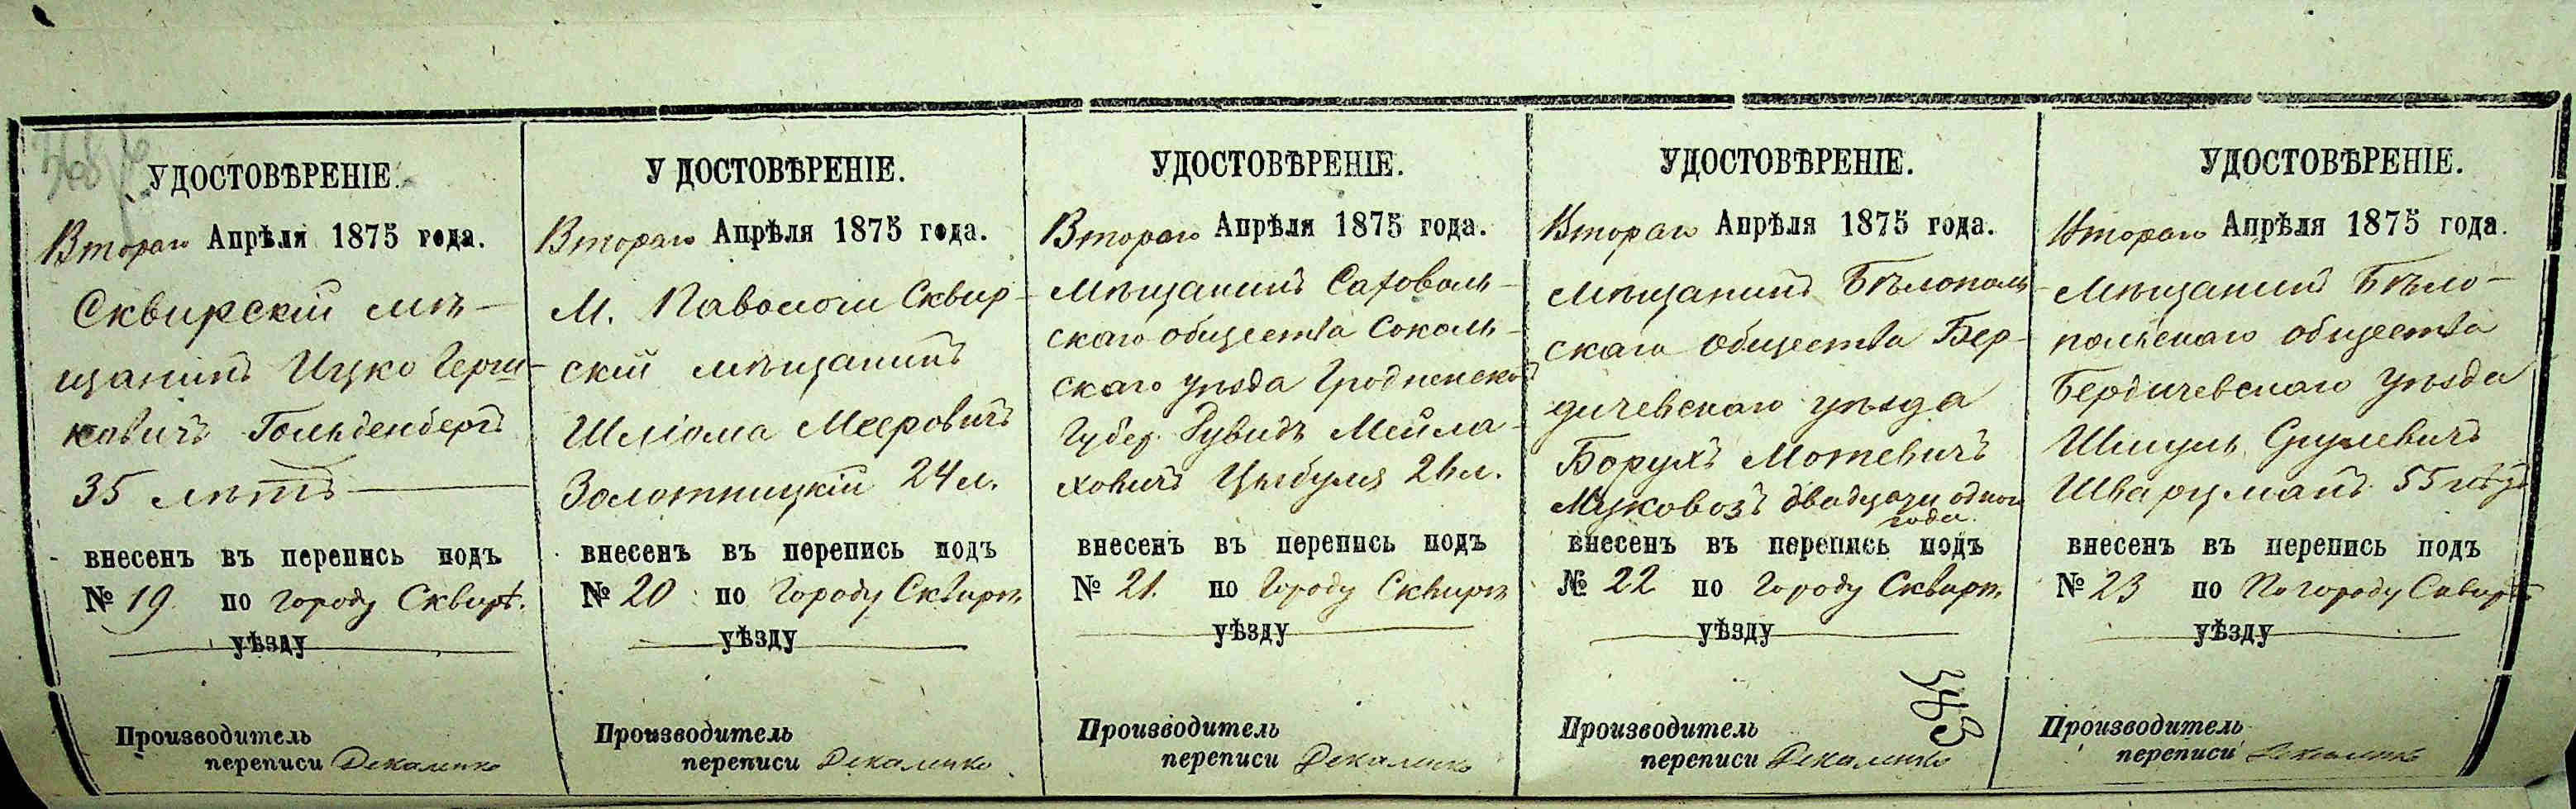 УДОСТОВѢРЕНІЕ.
Втораго Апрѣля 1875 года.
Сквирскій мѣ-
щанинъ Ицко Герш-
ковичъ Гольденбергъ
35 лѣтъ
внесенъ въ перепись подъ
№ 19 по городу Сквирѣ.
уѣзду
Производитель
переписи
У ДОСТОВѢРЕНІЕ.
Втораго Апрѣля 1875 года.
М. Паволочи Сквир-
скій мѣщанинъ
Шліома Мееровичъ
Золотницкій 24 л.
внесенъ въ перепись подъ
№ 20 по городу Сквирѣ
уѣзду
Производитель
переписи
УДОСТОВѢРЕНІЕ.
Втораго Апрѣля 1875 года.
Мѣщанинъ
скаго общества Соколь-
скаго уѣзда Гродненской
Губер. Рувидъ Мейла-
ховичъ Цыбуля л.
внесенъ въ перепись подъ
№ 21. по Городу Сквирѣ
уѣзду
Производитель
переписи
УДОСТОВѢРЕНІЕ.
Втораго Апрѣля 1875 года.
Мѣщанинъ Бѣлополь-
скаго общества Бер-
дичевскаго уѣзда
Борухъ Мотевичъ
Муковозъ двадцати одного
года.
внесенъ въ перепись подъ
№ 22 по городу Сквирѣ
уѣзду
Производитель
переписи
УДОСТОВѢРЕНІЕ.
Втораго Апрѣля 1875 года.
Мѣщанинъ Бѣло-
польскаго общества
Бердичевскаго уѣзда
Шмуль Срулевичъ
Шварцманъ 55 лѣтъ
внесенъ въ перепись подъ
№ 23 по По городу Сквирѣ
уѣзду
Производитель
переписи